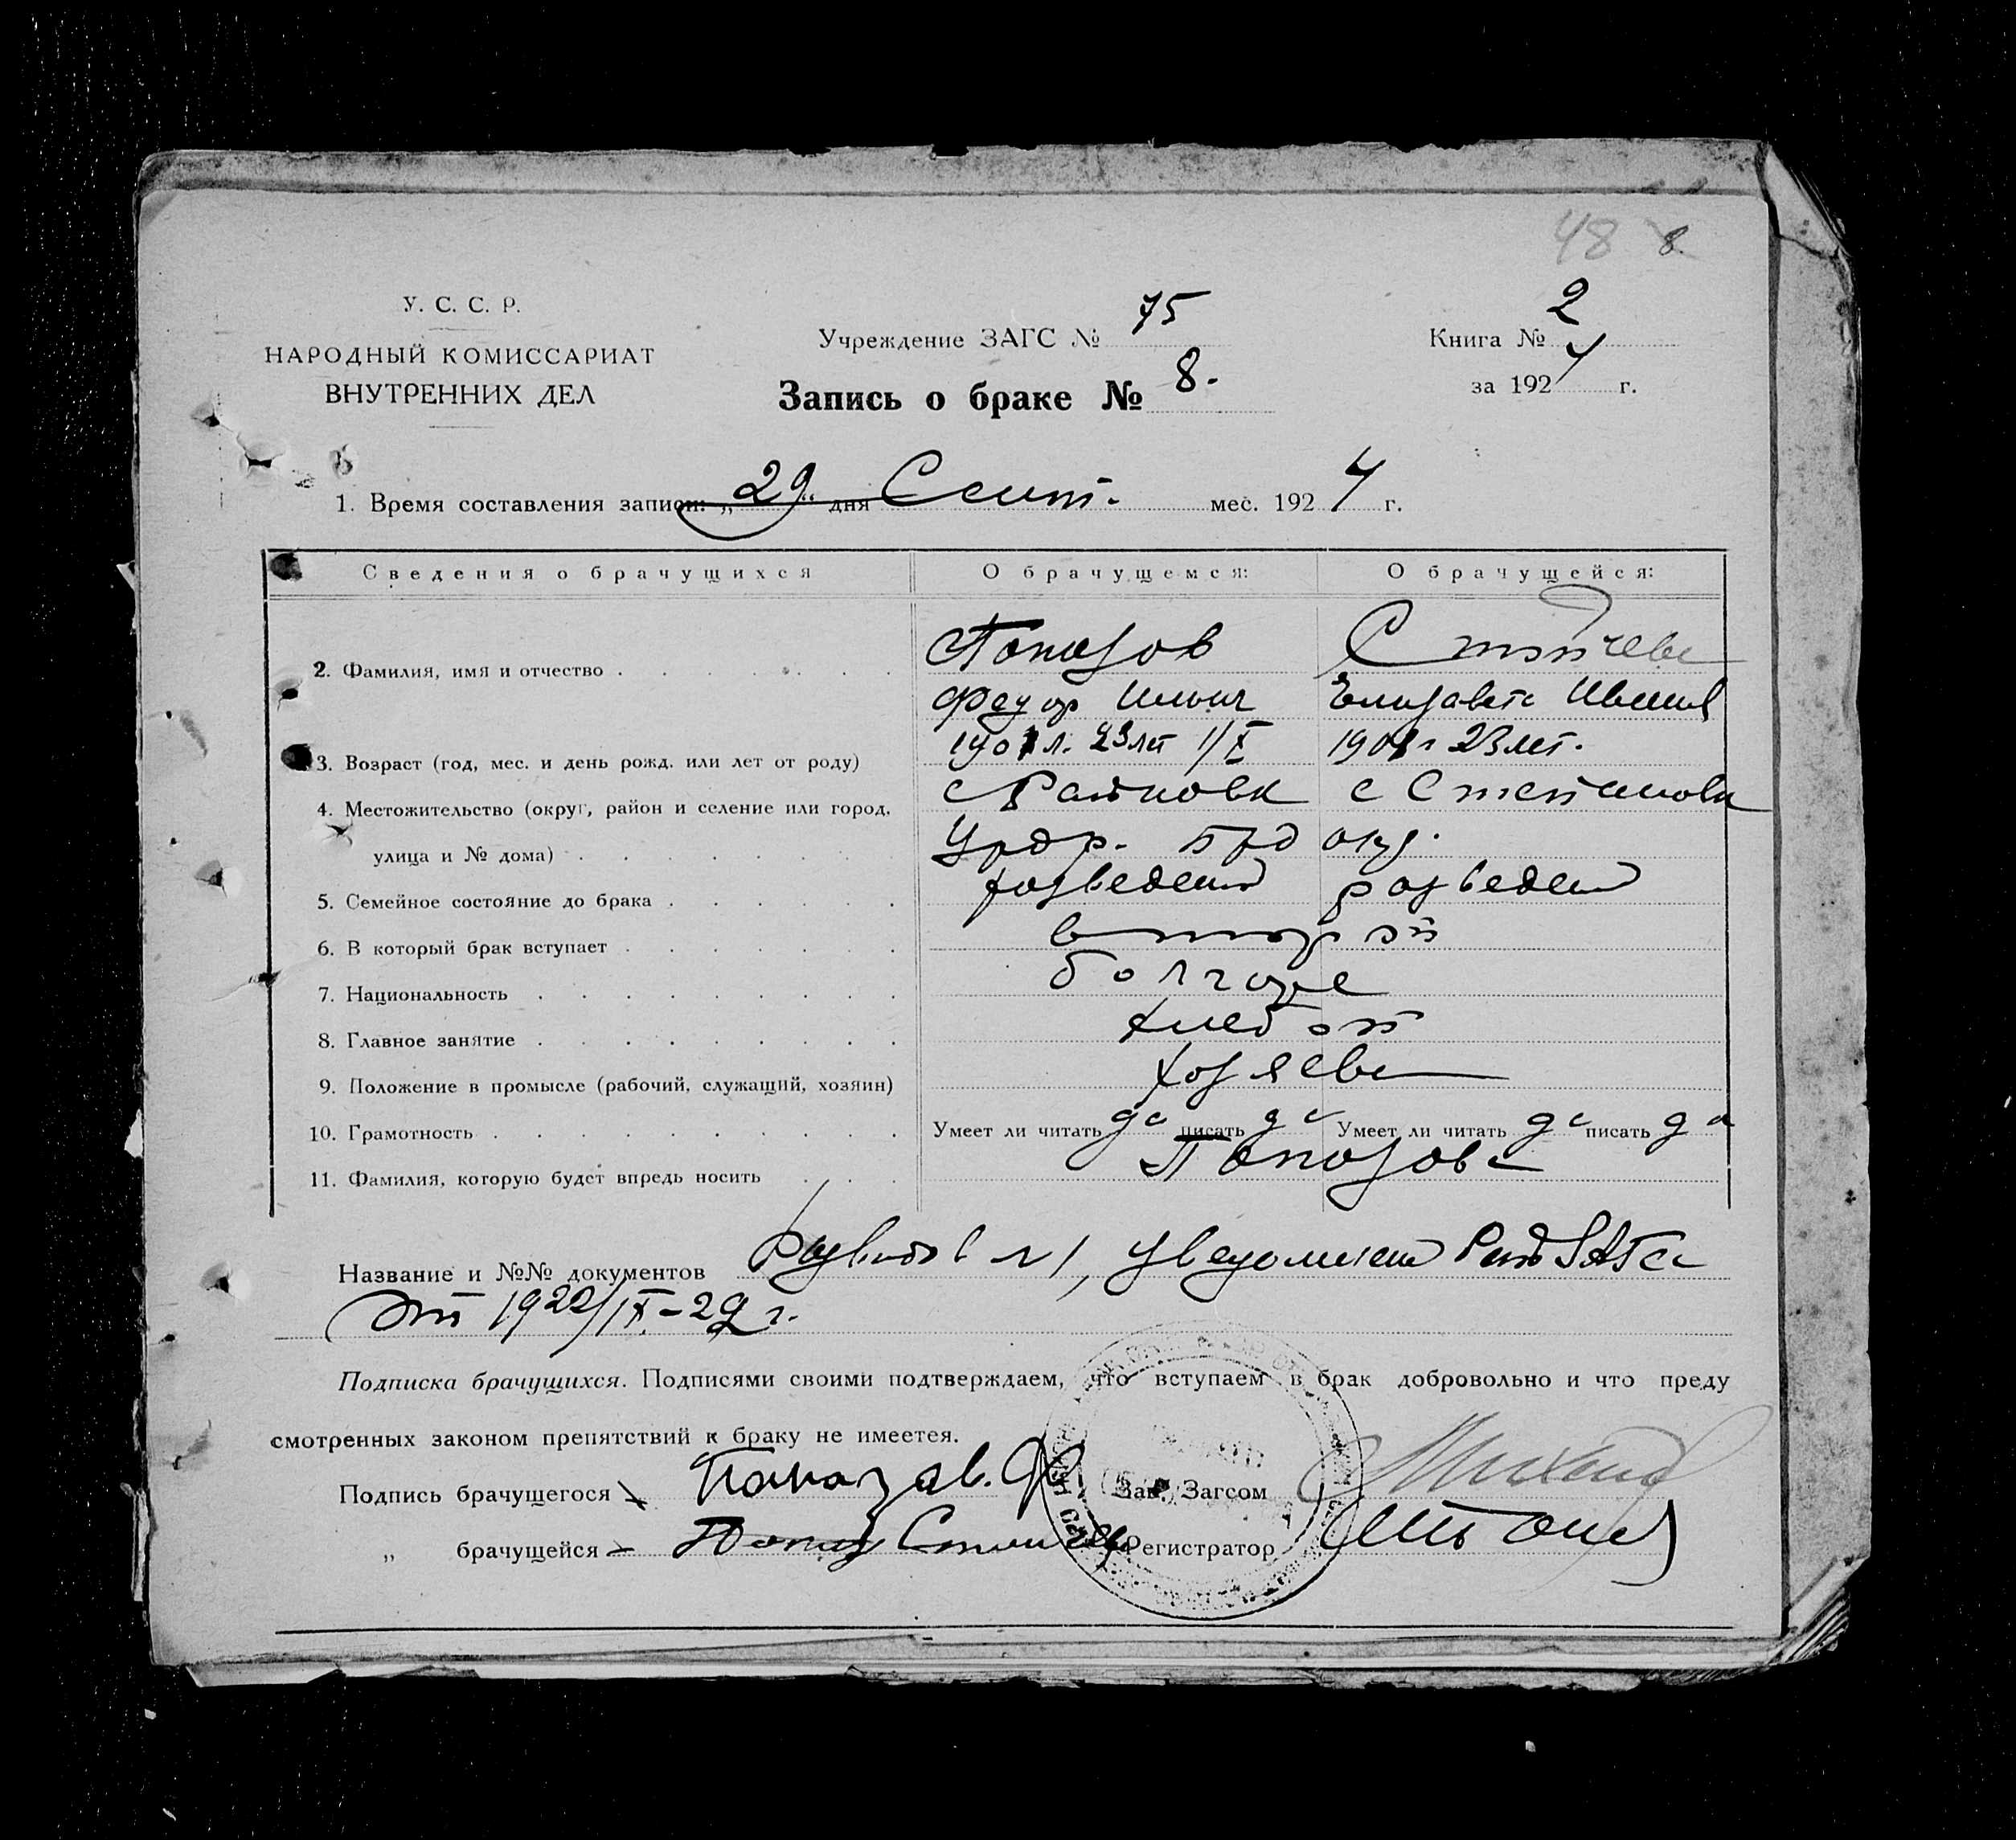 48 8.
У. С. С. Р.
НАРОДНЫЙ КОМИССАРИАТ
ВНУТРЕННИХ ДЕЛ
Учреждение ЗАГС № 75
Запись о браке № 8.
Книга № 2
за 1924 г.
1. Время составления записи: „29“ дня Сент. мес. 1924 г.
Сведения о брачущихся О брачущемся: О брачущейся:
2. Фамилия, имя и отчество Попазов Стойчева
Федор Ильич Елизавета Иванов
3. Возраст (год, мес. и день рожд. или лет от роду) 1901 г. 23 лет 1/X 1901 г 23 лет.
4. Местожительство (округ, район и селение или город, с с Степановка
улица и № дома) окр.
5. Семейное состояние до брака разведен развeден
6. В который брак вступает второй
7. Национальность болгаре
8. Главное занятие хлебоп
9. Положение в промысле (рабочий, служащий, хозяин) хозяева
10. Грамотность Умеет ли читать да писать да Умеет ли читать да писать да
11. Фамилия, которую будет впредь носить Попазова
Название и №№ документов
от 1922/IX-29 г.
Подписка брачущихся. Подписями своими подтверждаем, что вступаем в брак добровольно и что преду
смотренных законом препятствий к браку не имеется.
Подпись брачущегося Попазов. Ф Зав. Загсом
„ брачущейся Регистратор